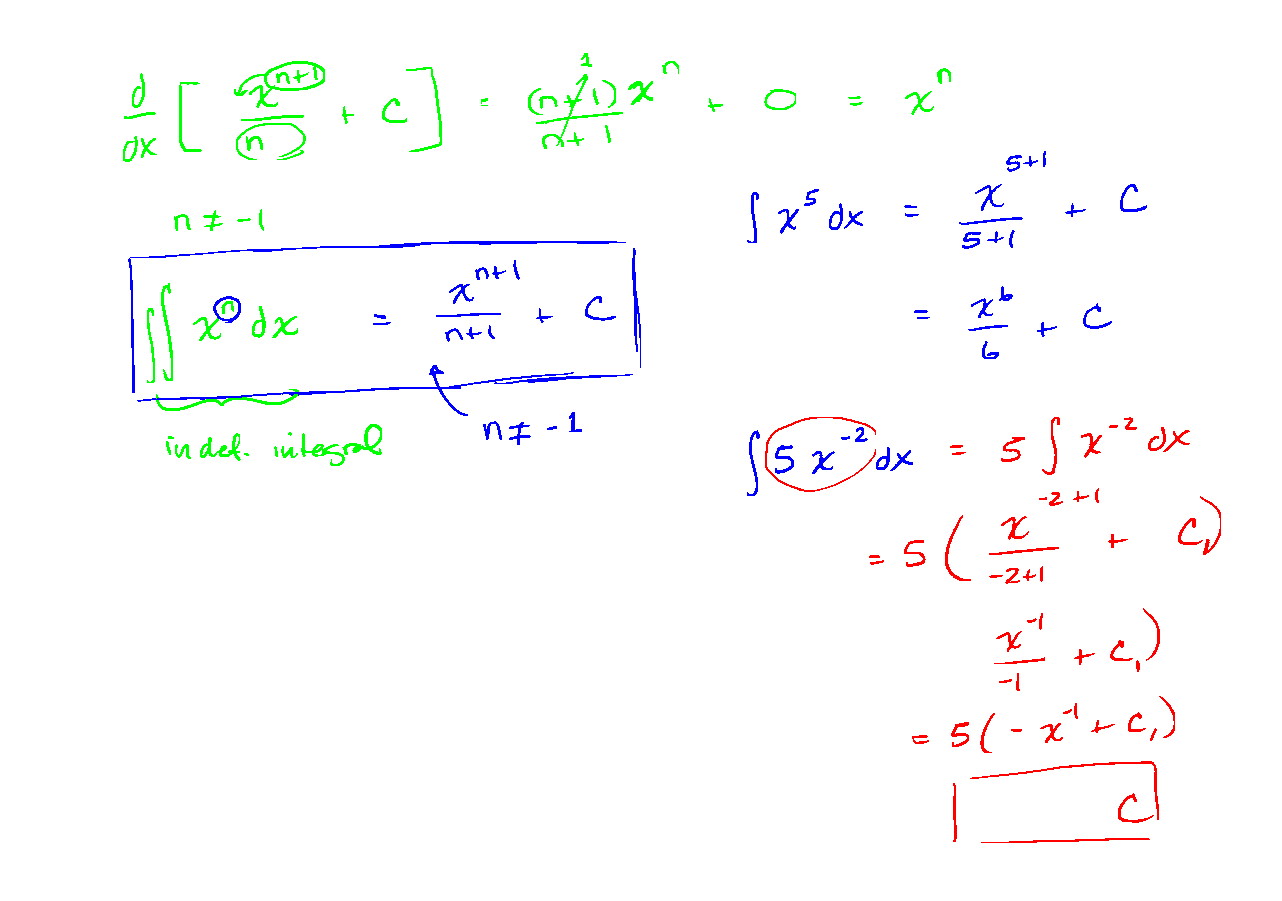 d/dx [ x^(n+1) / n + C ] = (n+1) x^n / n+1 + 0 = x^n
1
n ≠ -1
∬ x^n dx = x^(n+1) / n+1 + C
n ≠ -1
indef. integral
∫ x^5 dx = x^(5+1) / 5+1 + C
= x^6 / 6 + C
∫ 5 x^-2 dx = 5 ∫ x^-2 dx
= 5 ( x^(-2+1) / -2+1 + C₁)
x^-1 / -1 + C₁)
= 5 ( - x^-1 + C₁)
C